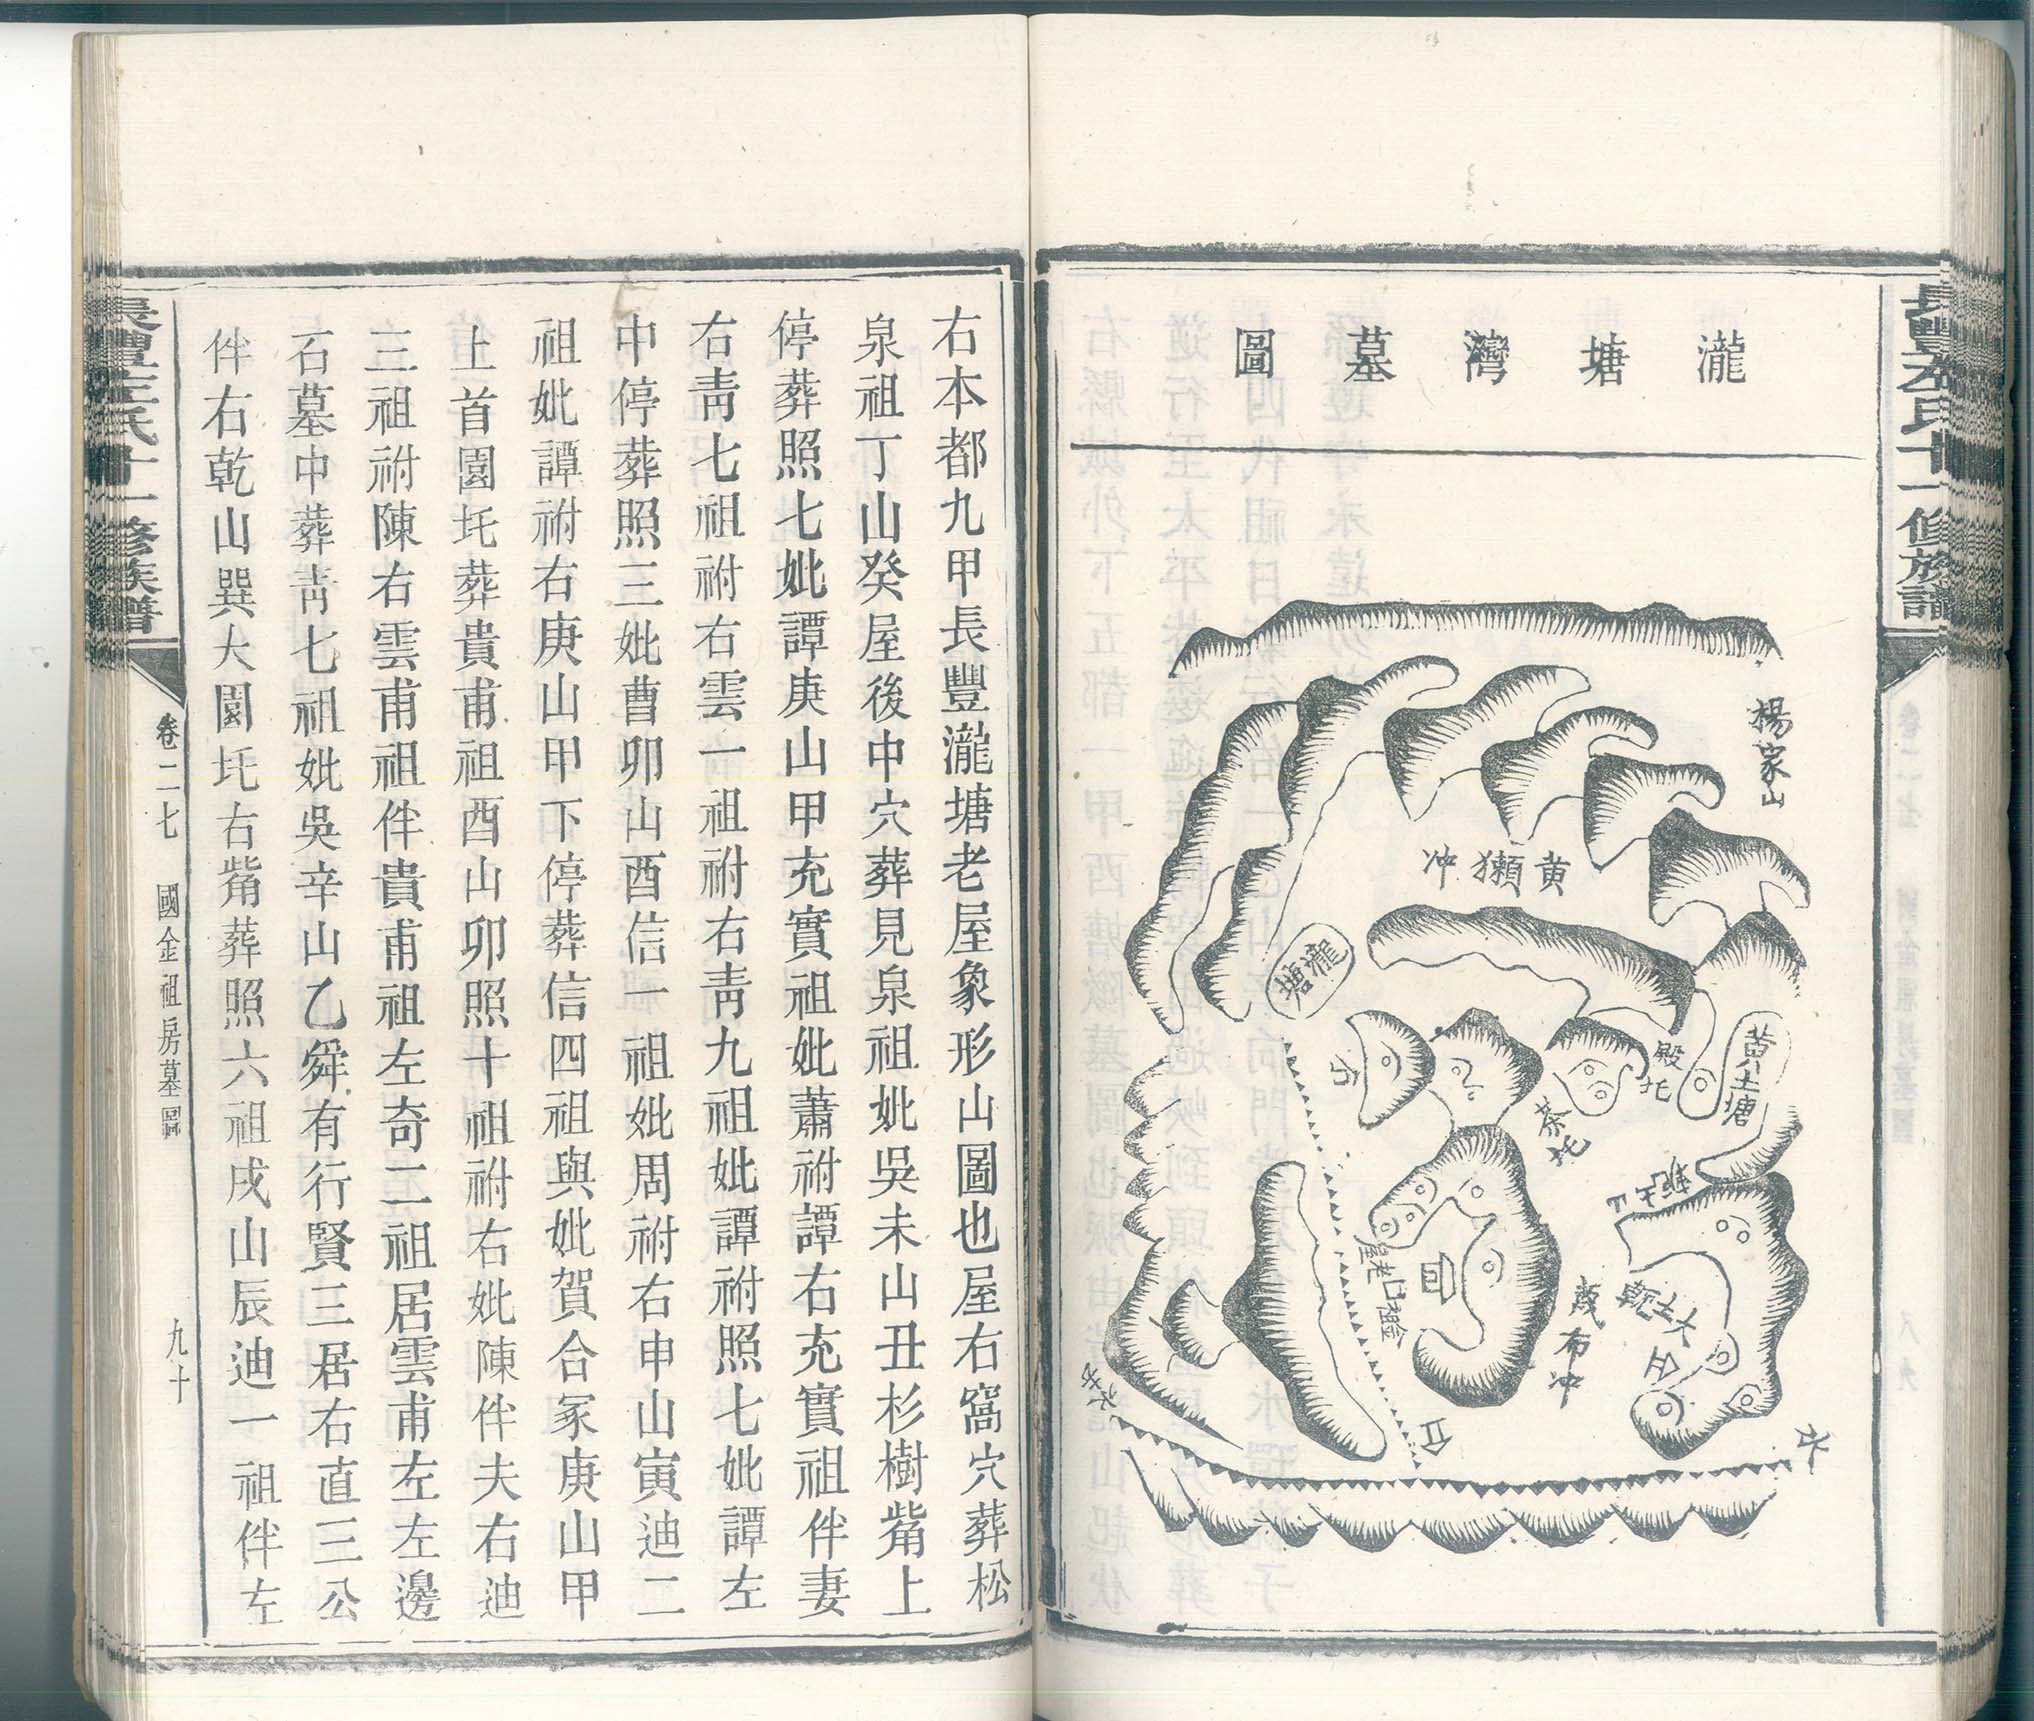 瀧塘灣墓圖
楊家山
黃獺冲
瀧塘
黃土塘
殿圫
茶圫
老屋
茂布冲
水
右本都九甲長豐瀧塘老屋象形山圖也屋右窩穴葬松
泉祖丁山癸屋後中穴葬見泉祖妣吳未山丑杉樹觜上
停葬照七妣譚庚山甲充實祖妣蕭祔譚右充實祖伴妻
右靑七祖祔右雲一祖祔右靑九祖妣譚祔照七妣譚左
中停葬照三妣曹卯山酉信一祖妣周祔右申山寅迪二
祖妣譚祔右庚山甲下停葬信四祖與妣賀合冢庚山甲
上首園圫葬貴甫祖酉山卯照十祖祔右妣陳伴夫右迪
三祖祔陳右雲甫祖伴貴甫祖左奇二祖居雲甫左左邊
石墓中葬靑七祖妣吳辛山乙舜有行賢三居右直三公
伴右乾山巽大園圫右觜葬照六祖戌山辰迪一祖伴左
卷二七 國金祖房墓圖 九十